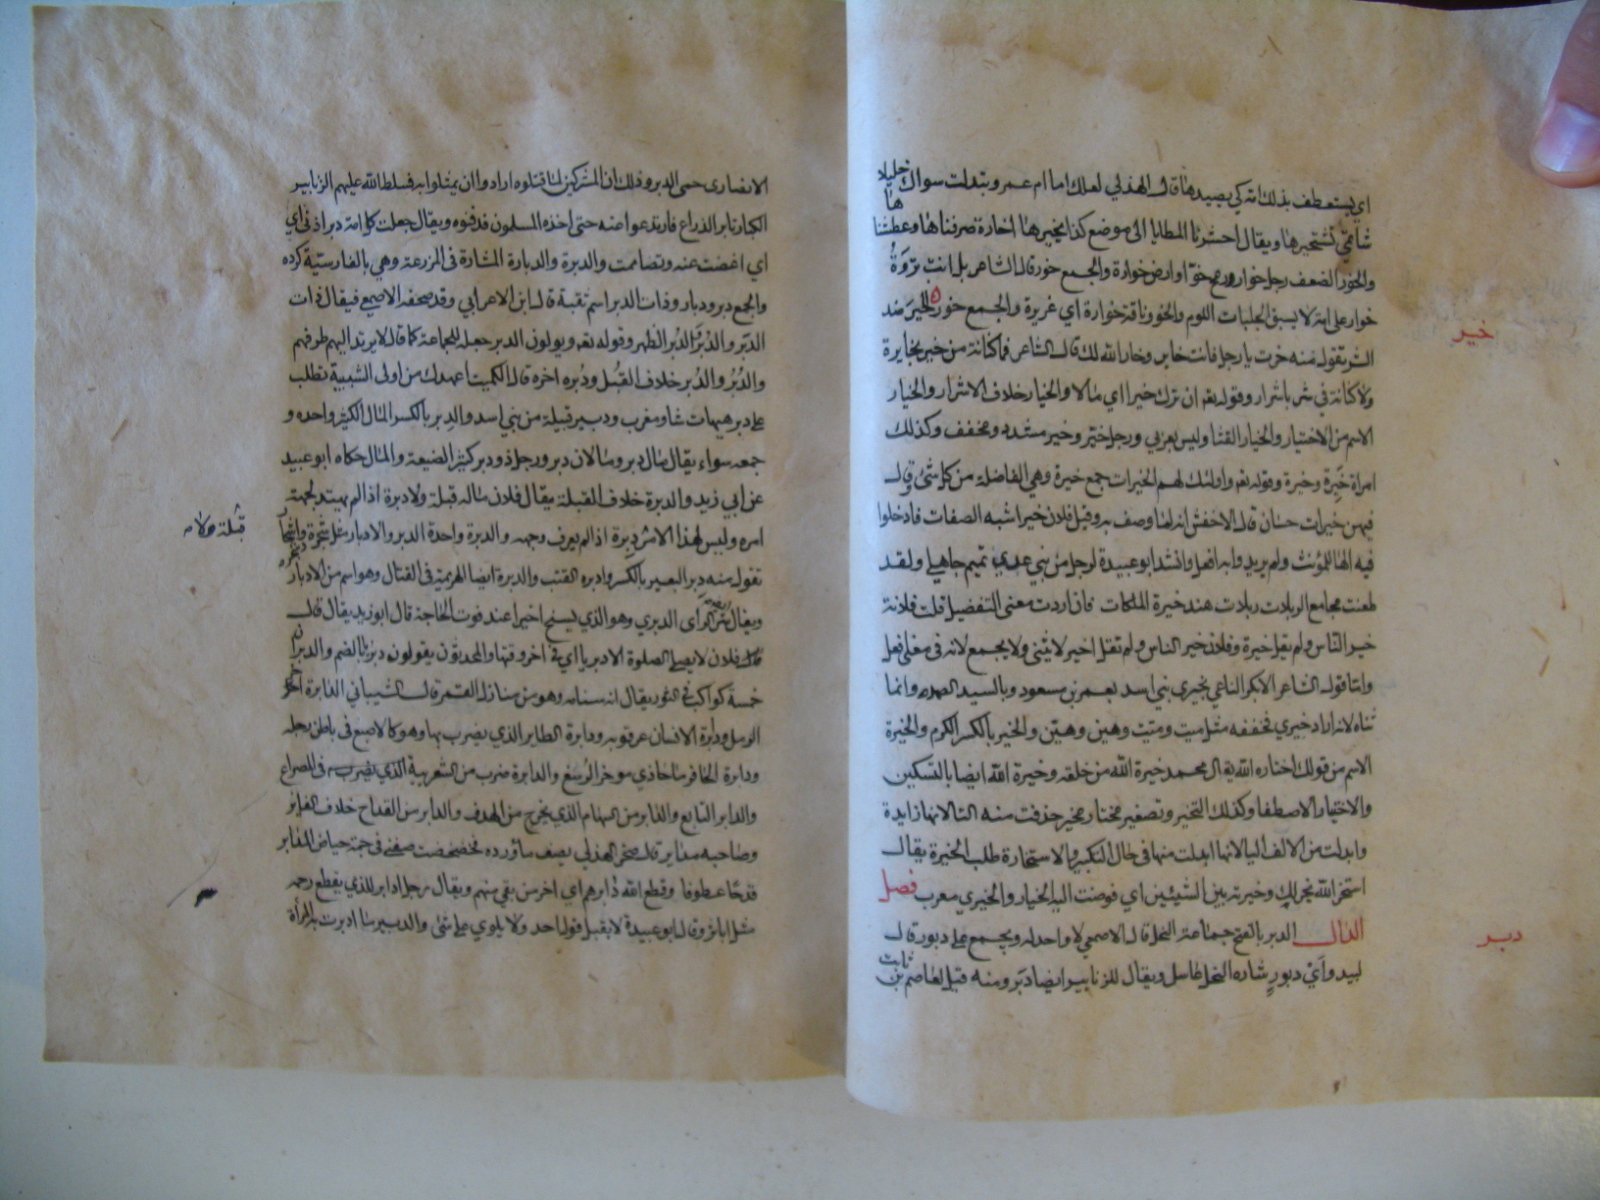 اي يستعطف بذلك امه كي يصيدها قال الهذلي لعلك اما ام عمرو تبدلت سواك خليلا
شاتمي تستخيرها ويقال احشرنا المطايا الى موضع كذا يخيرها اخارة صرفناها وعطفناها
والخور الضعف رجل خوار ورمح خوار وارض خوارة والجمع خور قال الشاعر بل انت نزوة
خوار على امة لا يسبق الحلبات اللوم والخور وناقة خوارة اي غزيرة والجمع خور الخير ضد
خير
الشر تقول منه خرت يا رجل فانت خاير وخار الله لك قال الشاعر فما كنانة من خير بخايرة
ولا كنانة في شر باشرار وقوله تعه ان ترك خيرا اي مالا والخيار خلاف الاشرار والخيار
الاسم من الاختيار والخيار القثا وليس بعربي ورجل خير وخير مشدد ومخفف وكذلك
امراة خيرة وخيرة وقوله تعه واولئك لهم الخيرات جمع خيرة وهي الفاضلة من كل شئ وقال
فيهن خيرات حسان قال الاخفش انه لما وصف به وقيل فلان خير اشبه الصفات فادخلوا
فيه الها للمؤنث ولم يريدوا به افعل وانشد ابو عبيدة لرجل من بني عدي تميم جاهلي ولقد
طعنت مجامع الربلات ربلات هند خيرة الملكات فان اردت معنى التفضيل قلت فلانة
خير الناس ولم تقل خيرة وفلان خير الناس ولم تقل اخير لا يثنى ولا يجمع لانه في معنى افعل
واما قول الشاعر الا بكر الناعي بخيري بني اسد بعمرو بن مسعود وبالسيد الصمد وانما
ثناه لانه اراد خيري فخففه مثل ميت وميت وهين وهين والخير بالكسر الكرم والخيرة
الاسم من قولك اختاره الله يقال محمد خيرة الله من خلقه وخيرة الله ايضا بالتسكين
والاختيار الاصطفا وكذلك التخير وتصغير مختار مخير حذفت منه التا لانها زايدة
وابدلت من الالف اليا لانها ابدلت منها في حال التكبير والاستخارة طلب الخيرة يقال
استخر الله يخر لك وخيرته بين الشيئين اي فوضت اليه الخيار والخيري معرب فصل
الدال الدبر بالفتح جماعة النحل قال الاصمعي لا واحد له ويجمع على دبور قال
دبر
لبيد واري دبور شاره النحل عاسل ويقال للزنابير ايضا دبر ومنه قيل لعاصم بن ثابت
الانصارى حمى الدبر وذلك ان المشركين لما قتلوه ارادوا ان يمثلوا به فسلط الله عليهم الزنابير
الكبار تابر الدراع فارتدعوا عنه حتى اخذه المسلمون فدفنوه ويقال جعلت كلامه دبر اذني اي
اي اغضت عنه وتصاممت والدبرة والدبارة المشارة في المزرعة وهي بالفارستية كرده
والجمع دبر ودبار وذات الدبر اسم ثنية قال ابن الاعرابي وقد صحفه الاصمعي فيقال ذات
الدبر والدبر الدبر الظهر وقوله تعه ويولون الدبر جعله للجماعة كما قال لا يرتد اليهم طرفهم
والدبر والدبر خلاف القبل ودبره اخره قال الكميت اعهدك من اولى الشبيبة تطلب
على دبر هيهات شاو مغرب ودبير قبيلة من بني اسد والدبر بالكسر المال الكثير واحده و
جمعه سواء يقال مال دبر ومالان دبر ورجل ذو دبر كثير الضيعة والمال حكاه ابو عبيد
عن ابي زيد والدبرة خلاف القبلة يقال فلان ماله قبلة ولا دبرة اذا لم يهتد لجهة
امره وليس لهذا الامر دبرة اذا لم يعرف وجهه والدبرة واحدة الدبر والادبار مثل شجرة وشجر
تقول منه دبر البعير بالكسر وادبره القتب والدبرة ايضا الهزيمة في القتال وهو اسم من الادبار
ويقال شر الراى الدبري وهو الذي يسنح اخيرا عند فوت الحاجة قال ابو زيد يقال
فلان لا يصلي الصلوة الا دبريا اي في اخر وقتها والمحدثون يقولون دبريا بالضم والدبران
خمسة كواكب في الثور يقال انه سنامه وهو من منازل القمر قال الشيباني الدابرة اخر
الرمل ودابرة الانسان عرقوبه ودابرة الطاير الذي يضرب بها وهو كالاصبع في باطن رجله
ودابرة الحافر ما حاذي موخر الرسغ والدابرة ضرب من الشغزبية في الصراع
والدابر التابع والدابر من السهام الذي يخرج من الهدف والدابر من القداح خلاف الفايز
وصاحبه مدابر قال صخر الهذلي يصف ماء ورده فخضخضت صفني في جمة خياض المدابر
قدحا عطوفا وقطع الله دابرهم اي اخر من بقي منهم ويقال رجل ادابر للذي يقطع رحمه
مثل اباتر وقال ابو عبيدة لا يقبل قول احد ولا يلوي على شئ والدبير ما ادبرت به المرأة